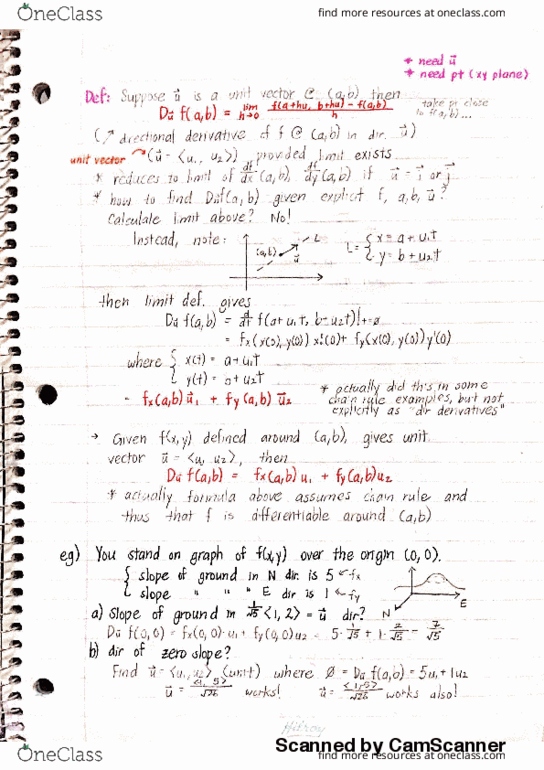 OneClass
find more resources at oneclass.com
* need u⃗
* need pt (xy plane)
Def: Suppose u⃗ is a unit vector @ (a,b) then
Dū f(a,b) = lim h→0 f(a+hu, b+hu) - f(a,b) / h
take pt close to f(a,b)...
(↗ directional derivative of f @ (a,b) in dir. u⃗)
unit vector (u⃗ = <u₁, u₂>) provided limit exists
* reduces to limit of df/dx (a,b), df/dy (a,b) if u⃗ = i⃗ or j⃗
* how to find Dūf(a,b) given explicit f, a,b, u⃗?
Calculate limit above? No!
Instead, note:
(a,b) u⃗ L
L = { x = a + u₁t
y = b + u₂t
then limit def. gives
Dū f(a,b) = d/dt f(a+u₁t, b+u₂t)|t=0
= fx(x(0), y(0)) x'(0) + fy(x(0), y(0)) y'(0)
where { x(t) = a+u₁t
y(t) = a+u₂t
= fx(a,b) u⃗₁ + fy(a,b) u⃗₂
* actually did this in some
chain rule examples, but not
explicitly as "dir derivatives"
→ Given f(x,y) defined around (a,b), gives unit
vector u⃗ = <u, u₂>, then
Dū f(a,b) = fx(a,b) u₁ + fy(a,b)u₂
* actually formula above assumes chain rule and
thus that f is differentiable around (a,b)
eg) You stand on graph of f(x,y) over the origin (0,0).
{ slope of ground in N dir. is 5 ← fx
slope " " " E dir is 1 ← fy
N E
a) Slope of ground in 1/√5 <1, 2> = u⃗ dir?
Dū f(0,0) = fx(0,0)·u₁ + fy(0,0)u₂ = 5·1/√5 + 1·2/√5 = 7/√5
b) dir of zero slope?
Find u⃗ = <u₁,u₂> (unit) where ∅ = Dū f(a,b) = 5u₁+1u₂
works! works also!
Hilroy
Scanned by CamScanner
OneClass
find more resources at oneclass.com